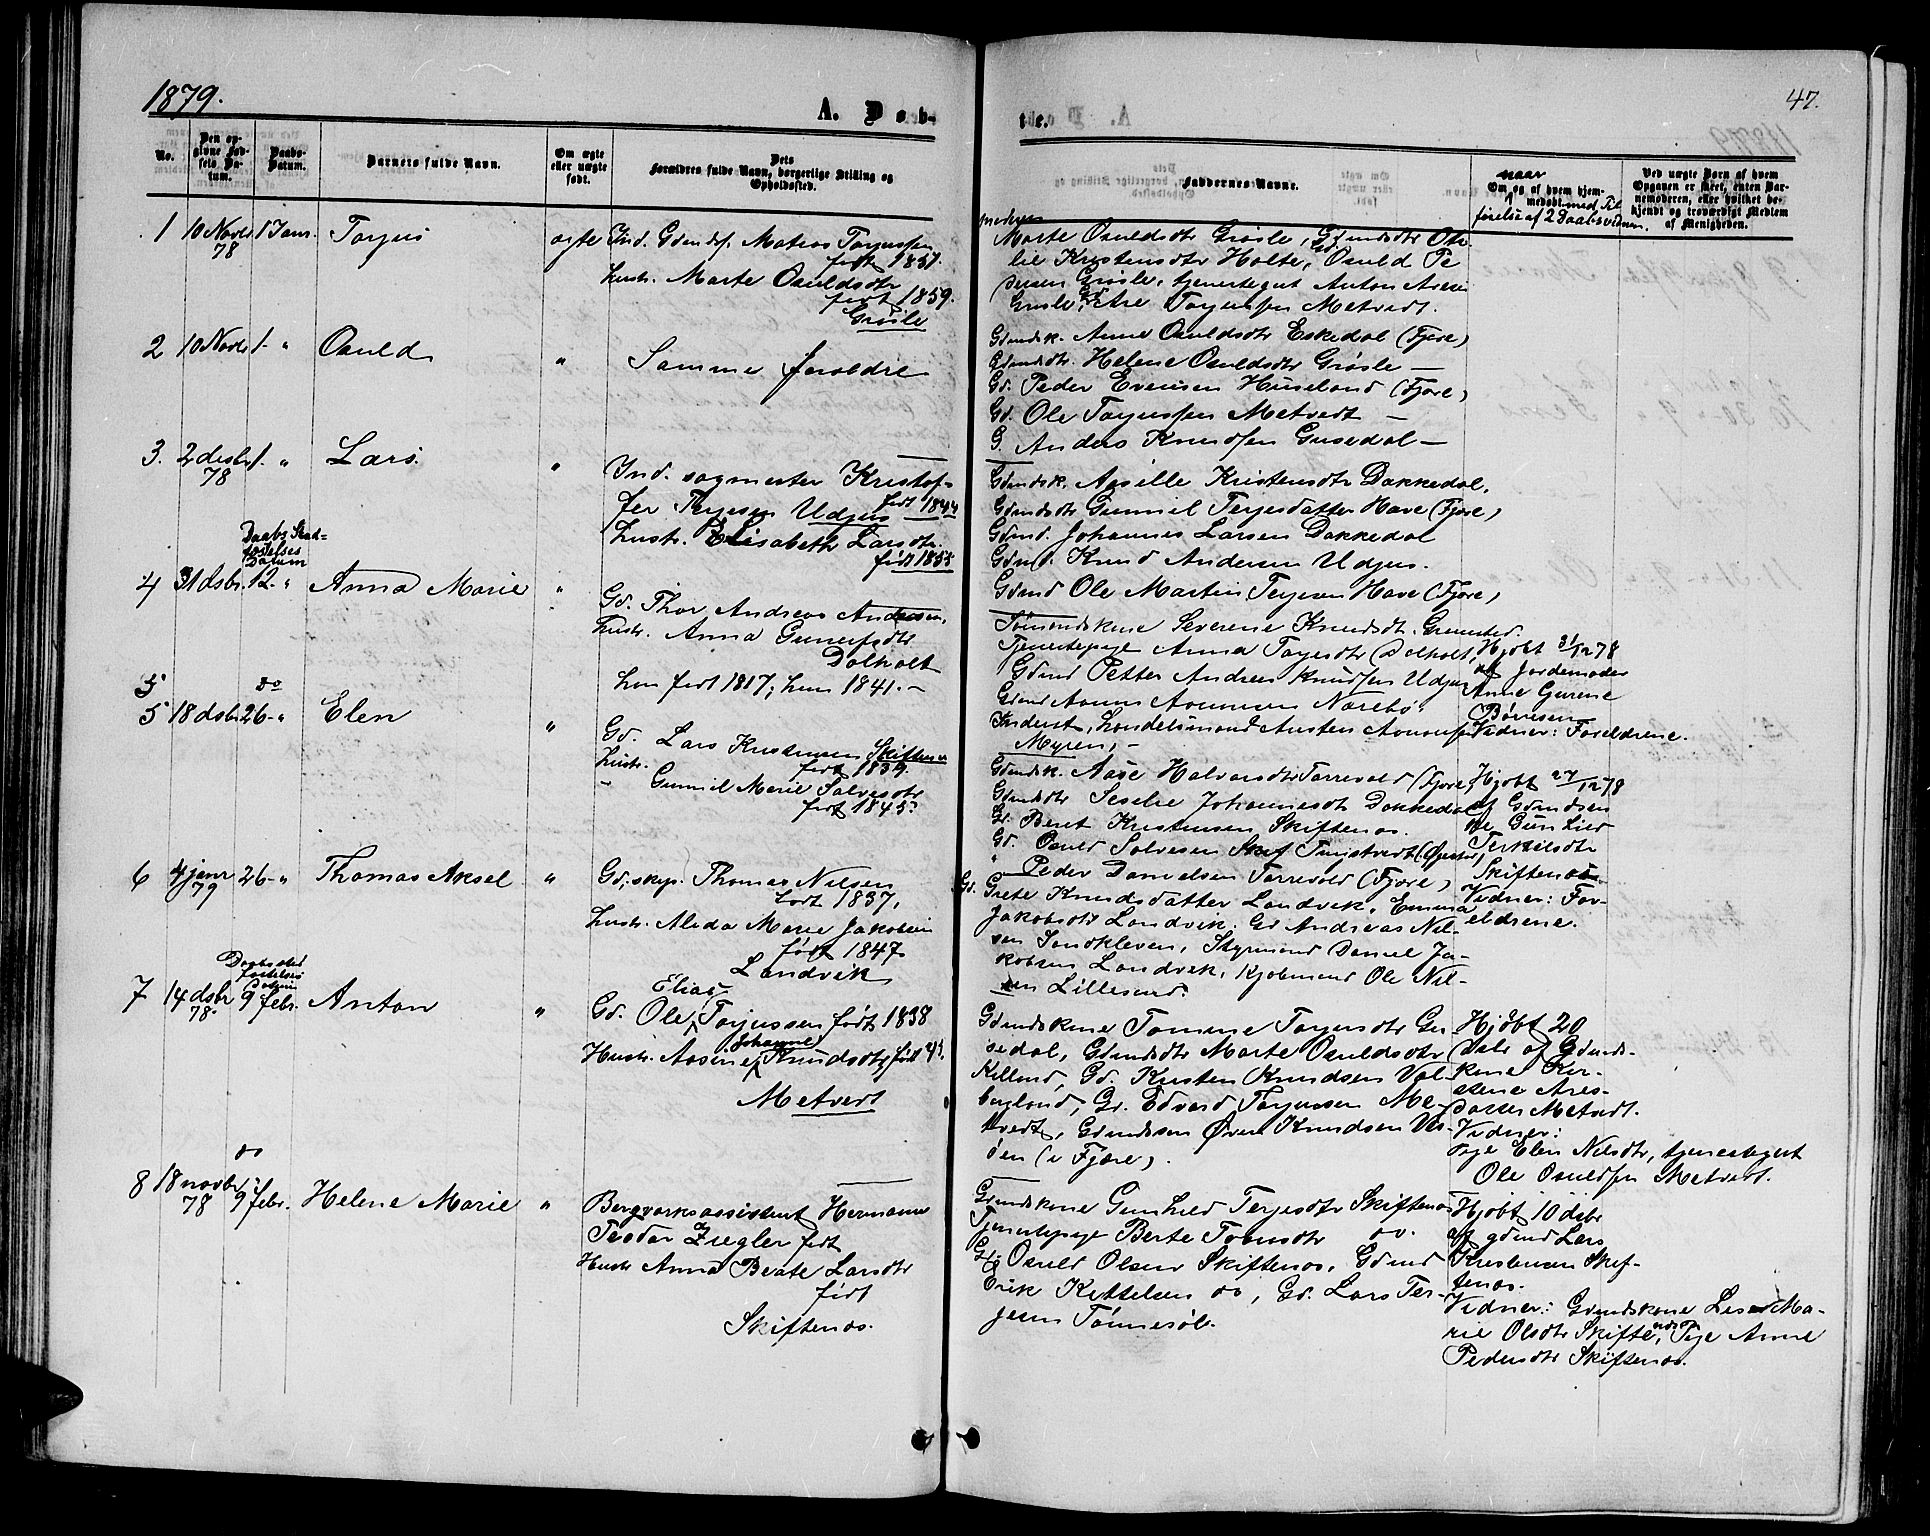 1879.
A. Døb-
te.
47.
No.
Den op-
givne Fød-
sels-Da-
tum.
Daabs-
Datum.
Barnets fulde Navn.
Om ægte
eller uægte
født.
Dets
Forældres fulde Navn, borgerlige Stilling og
Opholdssted.
Faddernes Navne.
naar
Om og af hvem hjem-
medøbt med Til
førelse af 2 Daabsvidner.
Ved uægte Børn af hvem
Opgaven er skeet, enten Bar-
nemoderen, eller hvilket be-
kjendt og troværdigt Medlem
af Menigheden.
1 10 Novbr 78 1 Janr. Torjus ægte
Ind. Gdmds. Matias Torjussen
født 1851.
Hustr. Marte Osuldsdtr
født 1859.
Grøsle
Marte Osuldsdtr Grøsle, Gdmdsdtr Ot-
lie Kristensdtr Holte, Osuld Pe
dersen Grøsle, tjenestegut Anton Aresen
Grøsle, Are Torjussen Metvedt.
2 10 Novbr 1. " Osuld "
Samme foreldre
Gdmdsk. Anne Osuldsdtr Eskedal (Fjære)
Gdmdsdtr. Helene Osuldsdtr Grøsle —
Gd. Peder Evensen Huseland (Fjære)
Gd. Ole Torjussen Metvedt —
G. Anders Knudsen Gusedal —
3. 2 desbr 78 1. " Lars. "
Ind. sagmester Kristof-
fer Terjesen Udjus født 1844
Hustr. Elisabeth Larsdtr.
født 1855
Gdmdsk. Aasille Kristensdtr Dakkedal,
Gdmdsdtr Gunnil Terjesdatter Have (Fjære)
Gdmd. Johannes Larsen Dakkedal
Gdmd. Knud Andersen Udjus.
Gdmd Ole Martin Terjesen Have (Fjære)
Daabs Stad-
festelses
Datum
4 31 dsbr. 12- " Anna Marie "
Gd. Thor Andreas Andersen,
Hustr. Anna Gunnufsdtr
Dolholt
han født 1817; hun 1841. —
Sømandskone Severine Knudsdtr. Grimstad.
Tjenestepige Anna Torjesdtr Dolholt,
Gdmd Petter Andreas Knudsen Udjus
Gdmd Aanen Aanensen Nærebø.
Inderst, Handelsmand Austen Aanensen
Myren, —
Hjdbt 31/12 78
af Jordemoder
Anne Gurine
Børresen
Vidner: Foreldrene.
5
5 18 dsbr do 26- " Elen "
Gd. Lars Kristensen Skiftenes
Hustr. født 1839.
— Gunnil Marie Salvesdtr
født 1845.
Gdmdsk. Aase Halvorsdtr Tarrevold (Fjære)
Gdmdsdtr Seselie Johannesdtr Dakkedal
Gd. Beret Kristensen Skiftenes.
Gd. Osuld Salvesen Tingstvedt (Øiestad)
" Peder Danielsen Tarrevold (Fjære)
Hjdbt 27/12 78
af Gdmdsen
ke Gunhild
Terkilsdtr
Skiftenes.
Vidner: For-
eldrene.
6 4 janr 79 26- " Thomas Aksel "
Gd; skp. Thomas Nilsen
født 1837,
Hustr. Alida Marie Jakobsen
født 1847.
Landvik
Gd. Grete Knudsdatter Landvik, Emma
Jakobsdtr Landvik. Gd Andreas Nil-
sen Sandkleven, Styrmand Daniel Ja-
kobsen Landvik, Kjøbmand Ole Nil-
sen Lillesand.
Daabsstad
festelses
Datum
7 14 dsbr 78. 9 febr. Anton "
Gd. Ole Elias Torjussen født 1838
Hustr. Aasine Johanne Knudsdtr, født 41.
Metvedt
Gdmdskone Tomine Torjusdtr Gu
sedal, Gdmdsdtr Marte Osuldsdtr
Killand, Gd. Kristen Knudsen Val-
berglund, Gd. Edvard Torjussen Me-
tvedt, Gdmdssøn Øven Knudsen Ves-
øen (i Fjære).
Hjdbt 20
dsbr af Gdmds-
kone Kir-
stine Ares-
datter Metvedt.
Vidner:
Pige Elen Nilsdtr, tjenestegut
Ole Osuldsen Metvedt.
8 18 novbr 78 do 9 febr. Helene Marie "
Bergværksassistent Hermann
Teodor Ziegler født
Hustr Anna Beate Larsdtr
født
Skiftenes.
Gdmdskone Gunhild Terjesdtr Skiftenes
Tjenestepige Berte Tomdsdtr do.
Gd. Osuld Olsen Skiftenes, Gdmd
Erik Kittelsen do, Gd. Lars Ter-
jesen Tønnesøl.
Hjdbt 10 dsbr
af gdmd Lars
Kristensen Skif-
tenes.
Vidner: Gdmdskone Lise Ma-
rie Olsdtr Skiftenes, Pige Anne
Pedersdtr Skiftenes.